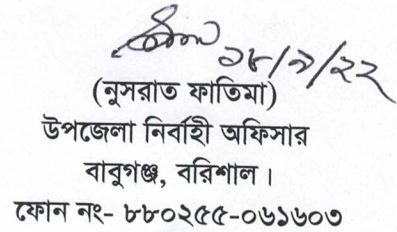 ১৮/৯/২২
(নুসরাত ফাতিমা)
উপজেলা নির্বাহী অফিসার
বাবুগঞ্জ, বরিশাল।
ফোন নং- ৮৮০২৫৫-০৬১৬০৩